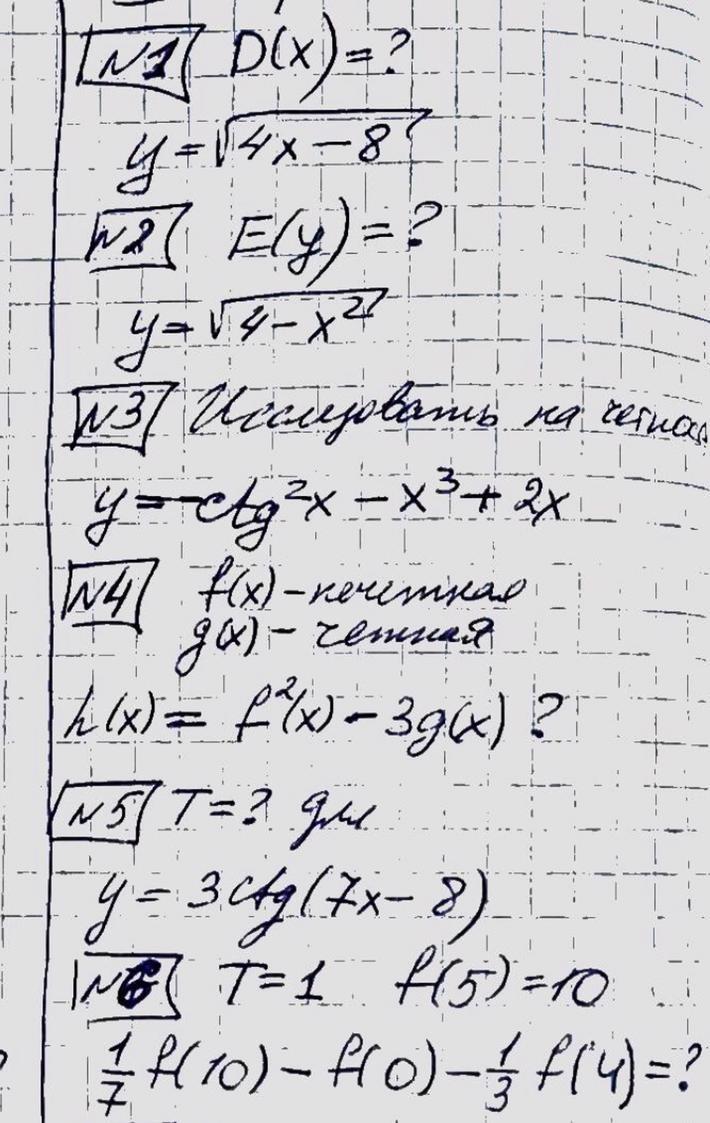 №1 D(x)=?
y=√(4x-8)
№2 E(y)=?
y=√(4-x²)
№3 Исследовать на четнос
y=-ctg²x-x³+2x
№4 f(x)-нечетная
g(x)-четная
h(x)=f²(x)-3g(x) ?
№5 T=? для
y=3ctg(7x-8)
№6 T=1 f(5)=10
1/7 f(10)-f(0)-1/3 f(4)=?